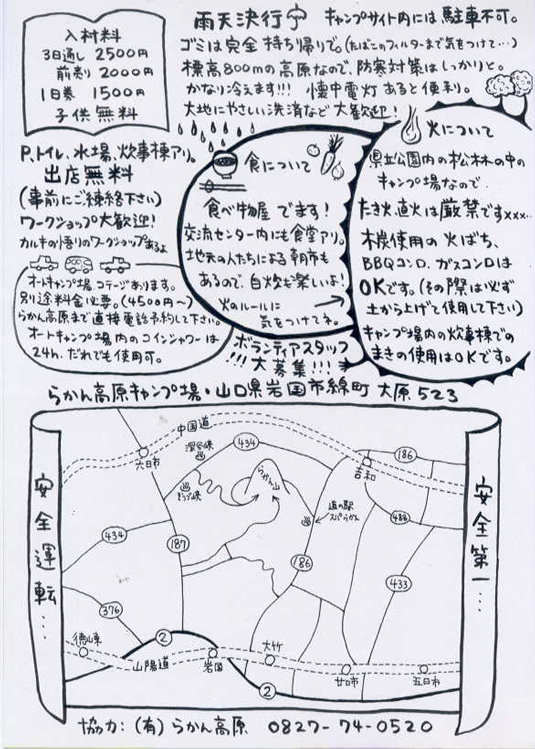 入村料
3日通し 2500円
前売り 2000円
1日券 1500円
子供 無料
雨天決行 キャンプサイト内には駐車不可。
ゴミは完全持ち帰りで。(たばこのフィルターまで気をつけて…)
標高800mの高原なので、防寒対策はしっかりと。
かなり冷えます!!! 懐中電灯あると便利。
大地にやさしい洗済など大歓迎!
P.トイレ、水場、炊事棟アリ。
出店無料
(事前にご連絡下さい)
ワークショップ大歓迎!
カルキの悟りのワークショップあるよ
オートキャンプ場 コテージあります。
別途料金必要。(4500円〜)
らかん高原まで直接電話予約して下さい。
オートキャンプ場内のコインシャワーは
24h. だれでも使用可。
食について
食べ物屋 でます!
交流センター内にも食堂アリ。
地元の人たちによる朝市も
あるので、自炊も楽しいよ!
火のルールに
気をつけてネ。
火について
県立公園内の松林の中の
キャンプ場なので、
たき火、直火は厳禁ですxxx...
木炭使用の火ばち、
BBQコンロ、ガスコンロは
OKです。(その際は必ず
土から上げて使用して下さい)
キャンプ場内の炊事棟での
まきの使用はOKです。
ボランティアスタッフ
大募集!!!
らかん高原キャンプ場・山口県岩国市錦町 大原 523
安全運転…
安全第一…
中国道
六日市
深谷峡
434
らかん山
186
吉和
道の駅
スパらかん
488
434
187
186
433
376
徳山東
2
山陽道
岩国
大竹
廿日市
五日市
2
協力:(有)らかん高原 0827-74-0520